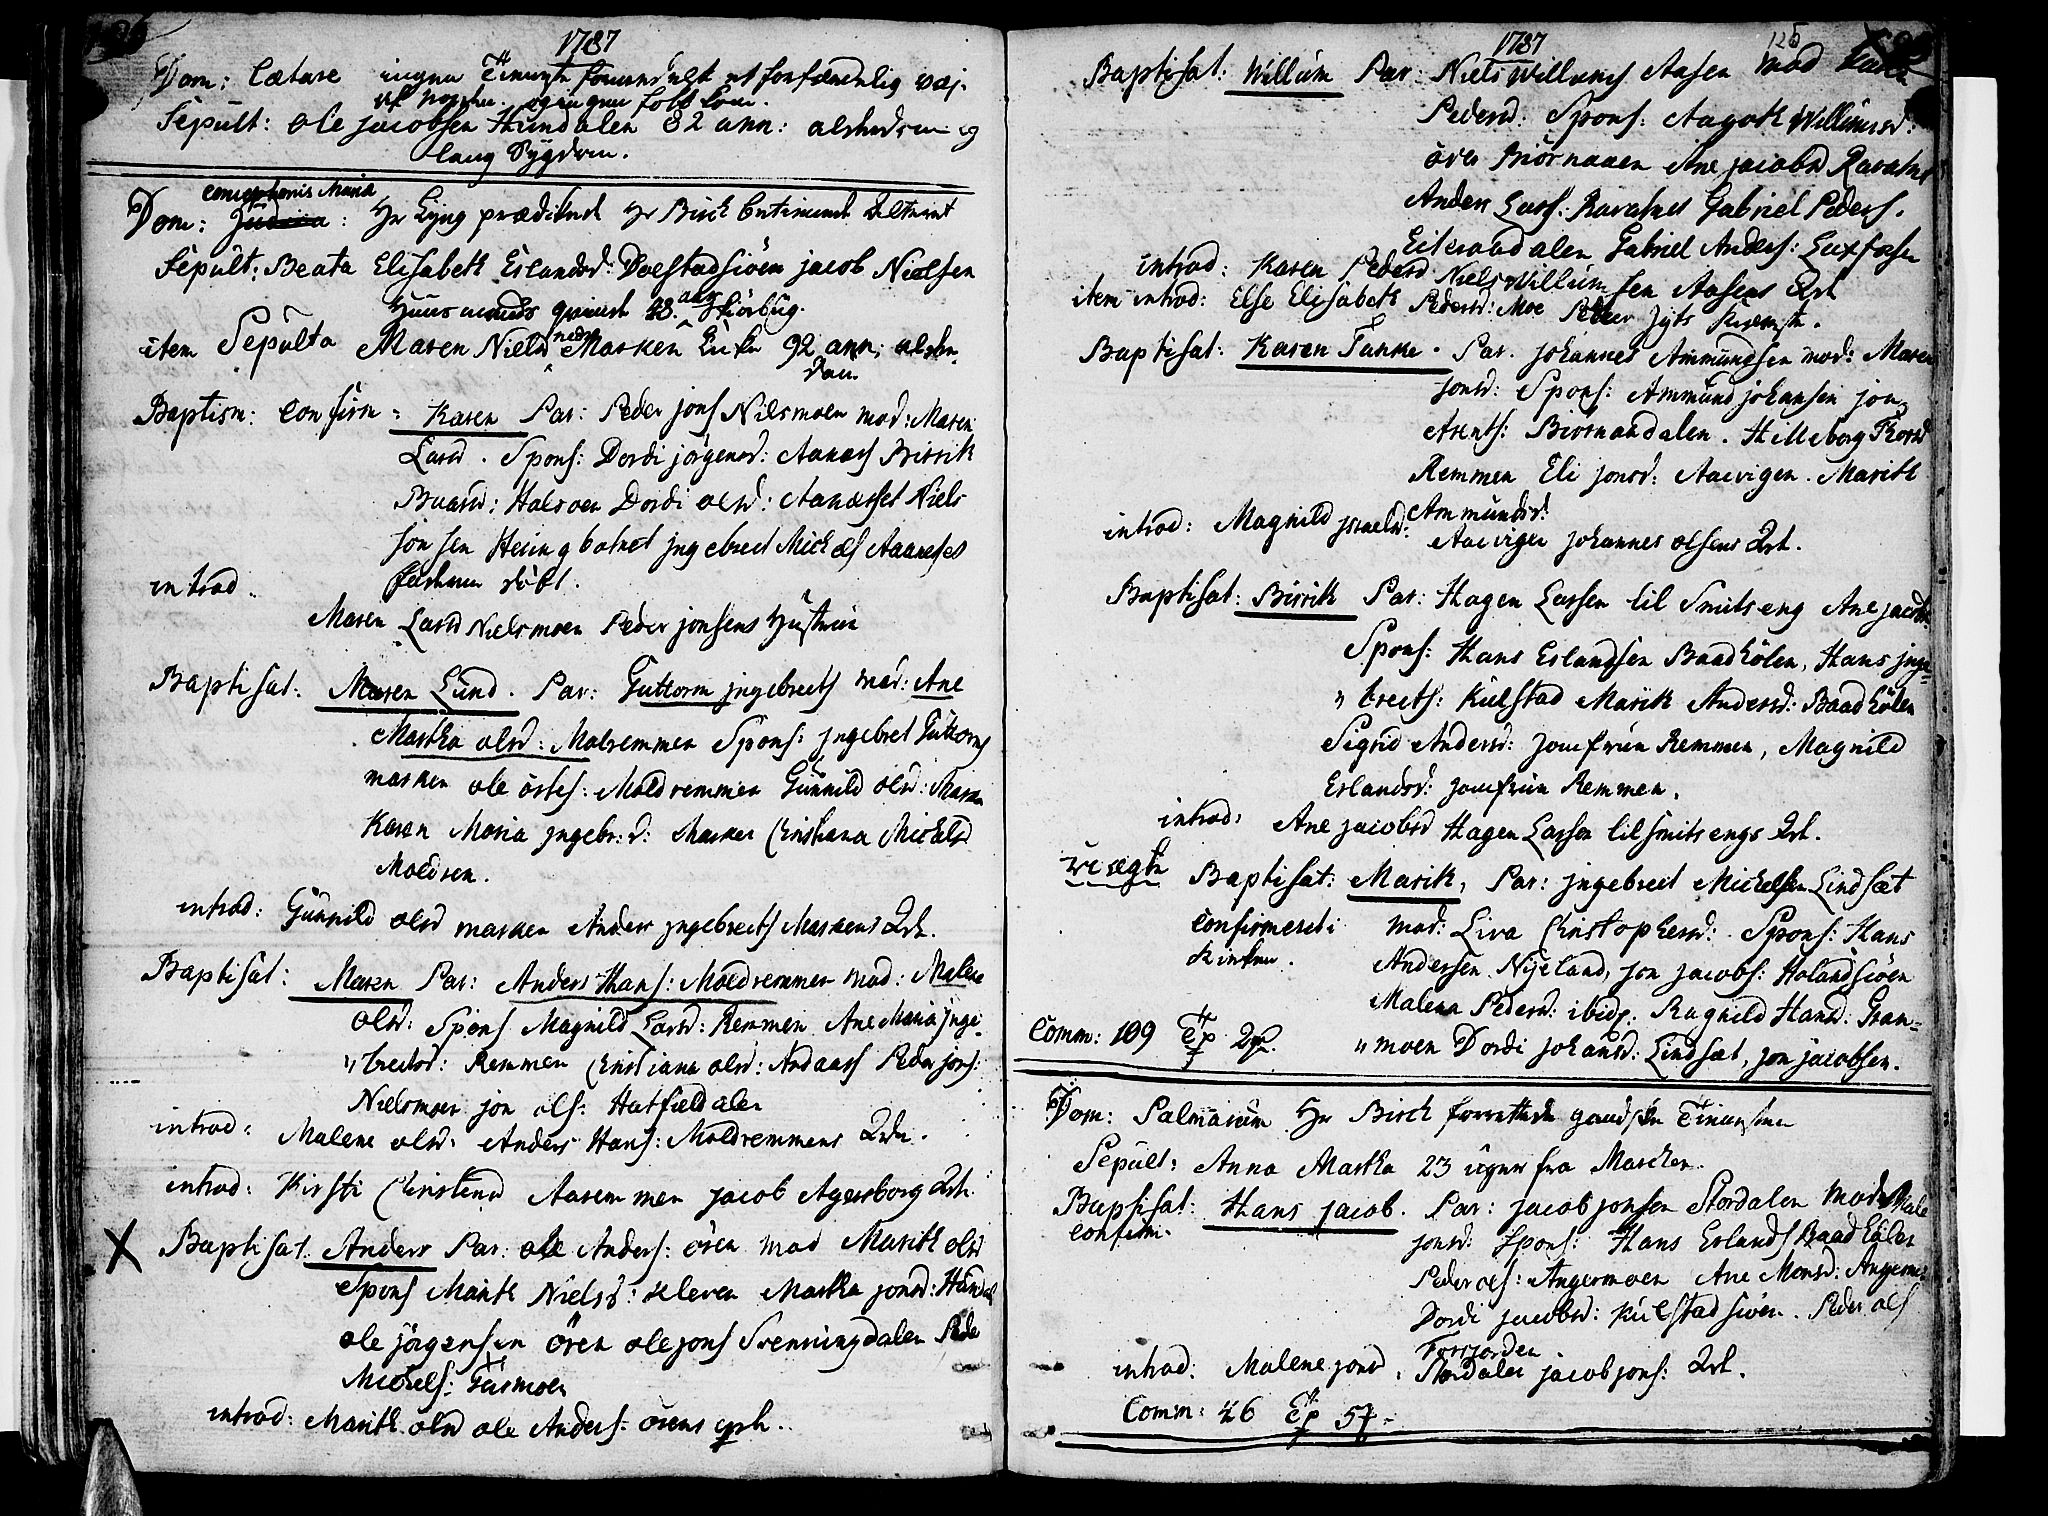 1787
Dom: Lætare ingen
af Norden. og ingen folk kom.
Sepult: Ole Jacobsen Hundalen 82 ann: alderdom og
lang Sygdom.
Conceptionis Maria
Dom: Judica: Hr Lyng prædikede Hr Birch betiente Alteret
Sepult: Beata Elisabeth Erlandsd: Dolstadsiöen Jacob Nielsen
Huusmands qvinde 28. aar Skiörbug.
item Sepulta Maren Nielsd nedre Marken 92 ann: alder
dom
Baptism: Confirm: Karen Par: Peder Jons Nielsmoen mod: Maren
Larsd. Spons: Dordi Jörgensd: Aanæss Birrith
Baarsd: Halsoen Dordi Olsd: Aanæsset Niels
Jonsen Heringbotnet Ingebreit Mich Aanesset
hiemme döbt.
introd.
Maren Larsd Nielsmoen Peder Jonsens Hustrue
Baptisat: Maren Lund. Par: Guttorm Ingebreits mod: Ane
Martha Olsd: Molremmen Spons: Ingebret Guttorms
marken Ole Östes: Moldremmen Gunnild Olsd: Marken
Karen Maria Ingebr: d: Marken Christiana Michelsd
Moldrem.
introd: Gunnild Olsd marken Anders Ingebreits Markens Qde.
Baptisat: Maren Par: Anders Hans: Moldremmen mod: Malene
Olsd: Spons Magnild Larsd: Remmen Ane Maria Inge-
" breitsd: Remmen Christiana Olsd: Andaass Peder Jons:
Nielsmoen Jon Ols: Hatfieldalen
introd: Malene Olsd: Anders Hans: Moldremmens Qde.
introd: Kirsti Christensd Aaremmen Jacob Agersborg Qde.
X Baptisat: Anders Par: Ole Anders: ören mod Marith Olsd
Spons Marith Nielsd: Kleven Martha Jonsd: Hundal
Ole Jörgensen ören Ole Jons Svenningdalen Pede
Michels: Fusmoen
introd: Marith Olsd Ole Anders: örens
1787
125
Baptisat: Willum Par: Niels Willums Aasen mod Karen
Pedersd: Spons: Aagoth Willumsd:
över Biörnaaen Ane Jacobsd Ravatnet
Anders Lars: Ravatnet Gabriel Peders.
Eiteraadalen Gabriel Anders: Luxfosen
introd: Karen Pedersd Niels Willumsen Aasens Qde
item introd: Else Elisabeth Pedersd: Moe
Baptisat: Karen Tanke. Par. Johannes Ammundsen mod: Maren
Jonsd: Spons: Ammund Johansen Jon
Arents: Biörnaadalen. Hilleborg Thorsd
Remmen Eli Jonsd: Aaevigen. Marith
Ammundsd:
introd: Magnild Israelsd: Aaeviger Johannes Olsens Qde.
Baptisat: Birrith Par: Hagen Larsen lil Smitseng Ane Jacobsd:
Spons: Hans Erlandsen Baadhölen, Hans Inge=
" breits: Kulstad Marith Andersd: Baadhölen
Sigrid Andersd: Jomfrue Remmen, Magnild
Erlandsd: Jomfrue Remmen.
introd: Ane Jacobsd Hagen Larsen lil Smitsengs Qde.
uægte Baptisat: Marith, Par: Ingebreit Michelsen Lindsæt
Confirmeret i mod: Liva Christophersd: Spons: Hans
Kirken. Andersen Nyeland, Jon Jacobs: Holandsiöen
Malena Pedersd: ibid: Ragnild Hansd: Gran=
" moen Dordi Johansd: Lindsæt, Jon Jacobsen.
Comm: 109
Dom: Palmarum Hr Birch forrettede gandske Tienesten
Sepult: Anna Martha 23 uger fra Marken.
Baptisat: Hans Jacob. Par: Jacob Jonsen Stordalen mod: Male
confirm. Jonsd: Spons: Hans Erlands Baadhölen
Peder Ols: Angermoen Ane Monsd: Angermo
Dordi Jacobsd: Kulstadsiöen. Peder Ols
Forsjorden.
introd: Malene Jonsd, Stordalen Jacob Jons: Qde.
Comm: 46